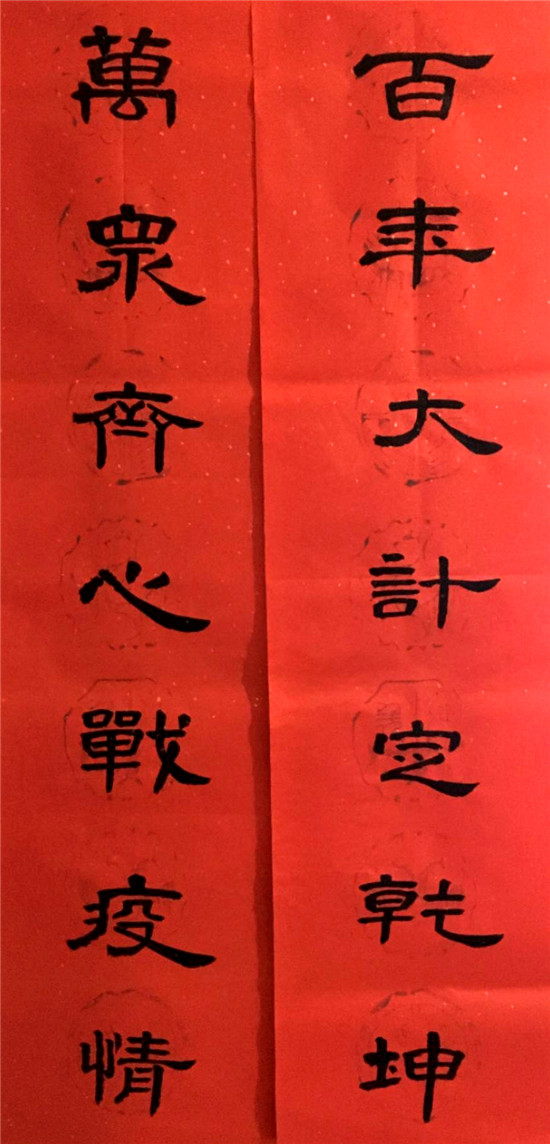 百年大計定乾坤
萬眾齊心戰疫情